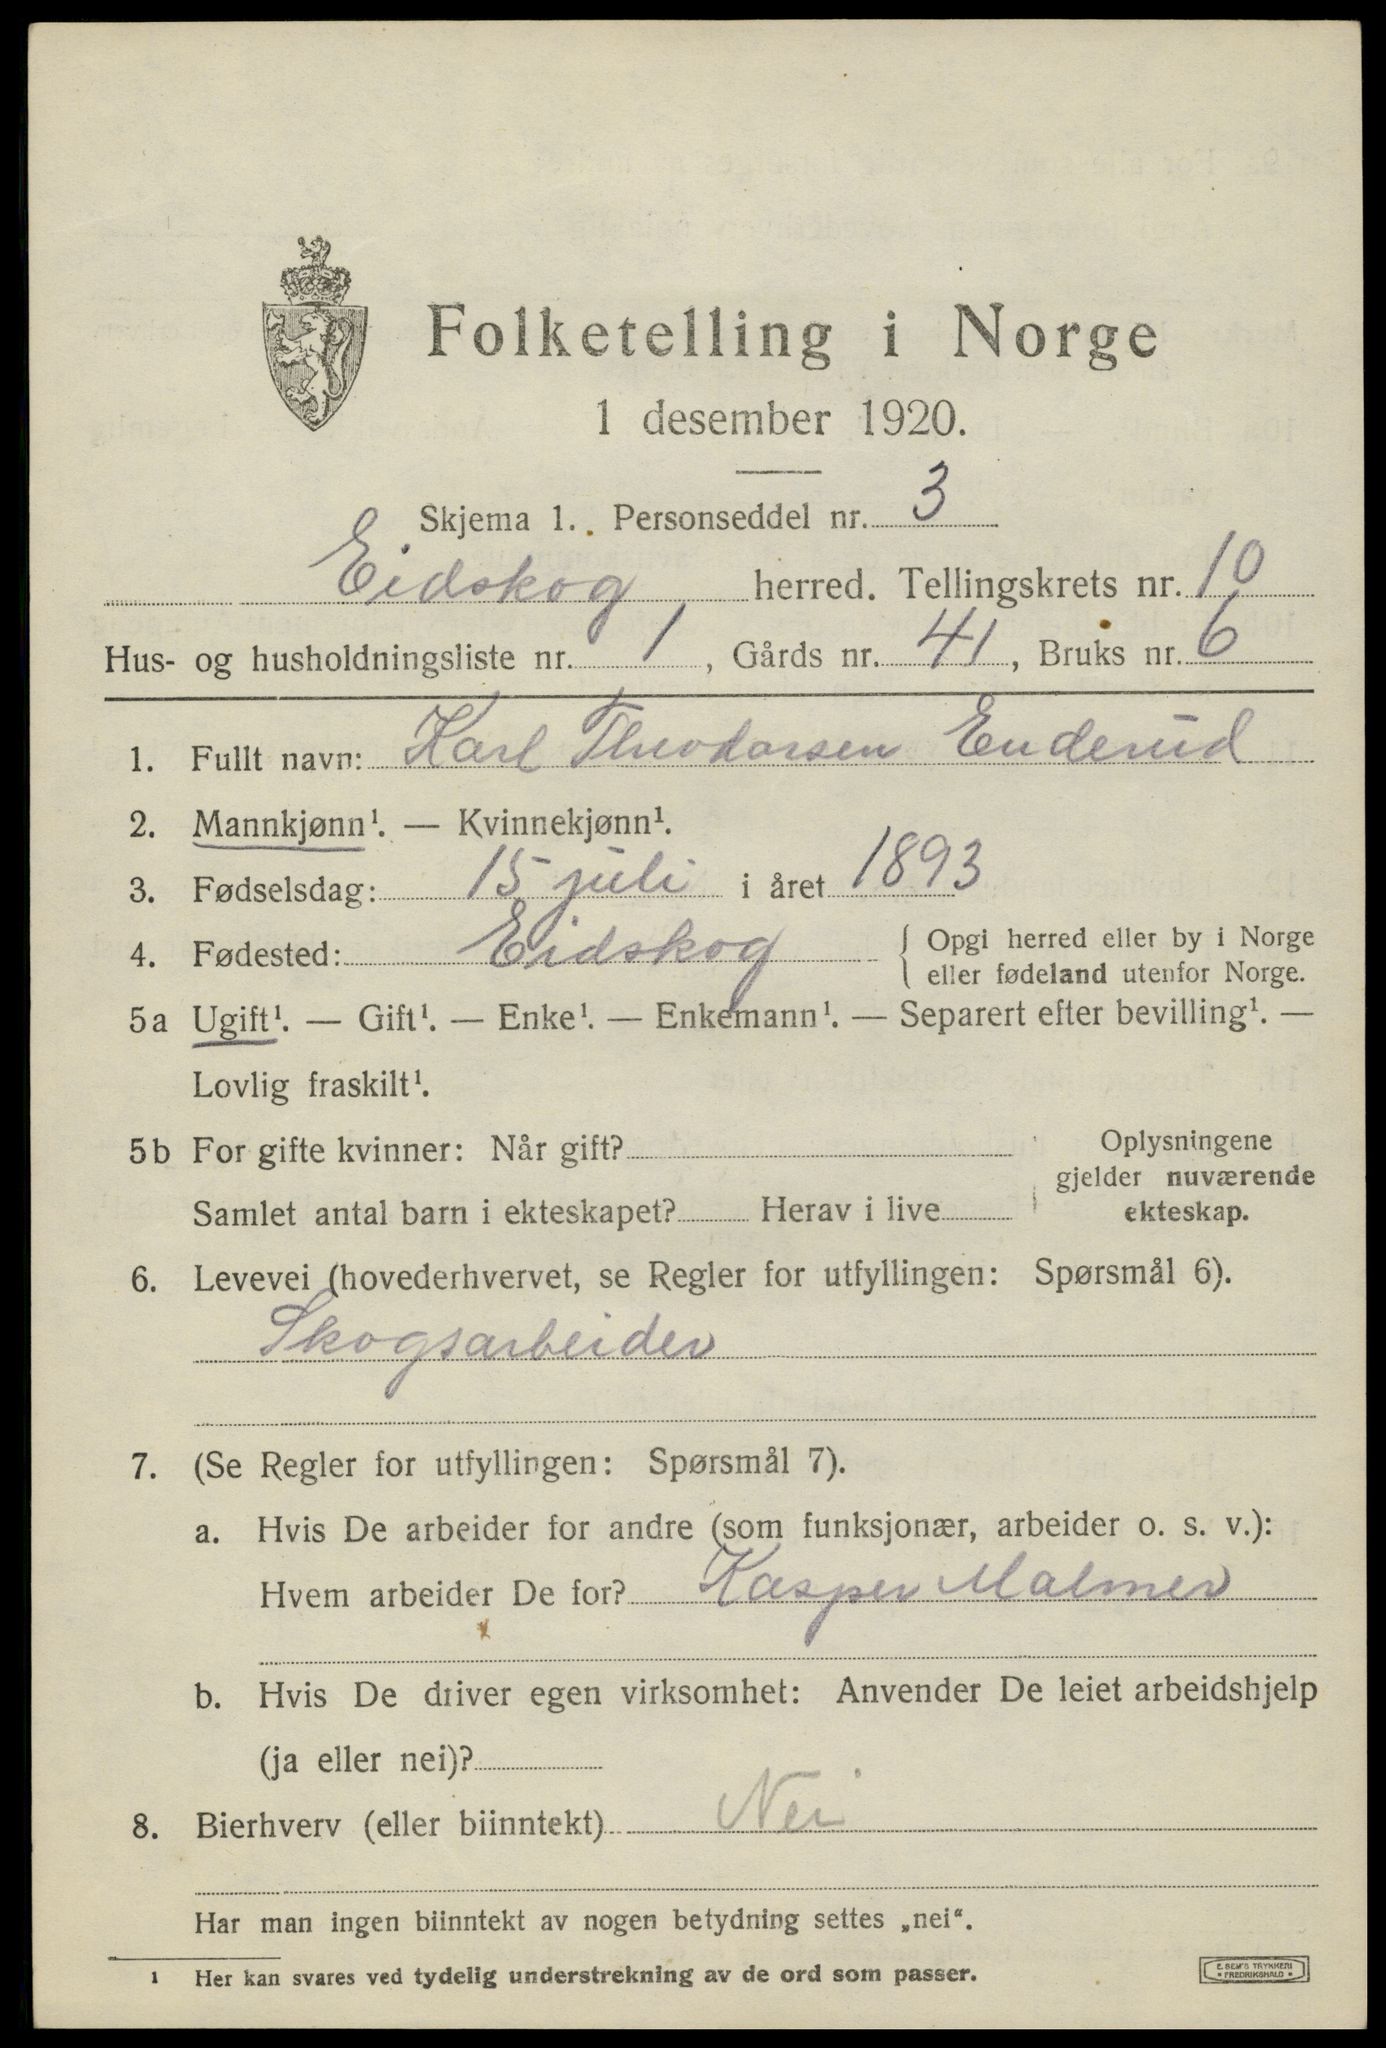 Folketelling i Norge
1 desember 1920.
Skjema 1. Personseddel nr. 3
Eidskog herred. Tellingskrets nr. 10
Hus- og husholdningsliste nr. 1, Gårds nr. 41, Bruks nr. 6
1. Fullt navn: Karl Theodorsen Enderud
2. Mannkjønn¹. — Kvinnekjønn¹.
3. Fødselsdag: 15 juli i året 1893
4. Fødested: Eidskog { Opgi herred eller by i Norge
eller fødeland utenfor Norge.
5a Ugift¹. — Gift¹. — Enke¹. — Enkemann¹. — Separert efter bevilling¹. —
Lovlig fraskilt¹.
5b For gifte kvinner: Når gift?
Samlet antal barn i ekteskapet? Herav i live
Oplysningene
gjelder nuværende
ekteskap.
6. Levevei (hovederhvervet, se Regler for utfyllingen: Spørsmål 6).
Skogsarbeider
7. (Se Regler for utfyllingen: Spørsmål 7).
a. Hvis De arbeider for andre (som funksjonær, arbeider o. s. v.):
Hvem arbeider De for? Kasper Malmer
b. Hvis De driver egen virksomhet: Anvender De leiet arbeidshjelp
(ja eller nei)?
8. Bierhverv (eller biinntekt) Nei
Har man ingen biinntekt av nogen betydning settes „nei“.
1 Her kan svares ved tydelig understrekning av de ord som passer.
E. SEM'S TRYKKERI
• FREDRIKSHALD •